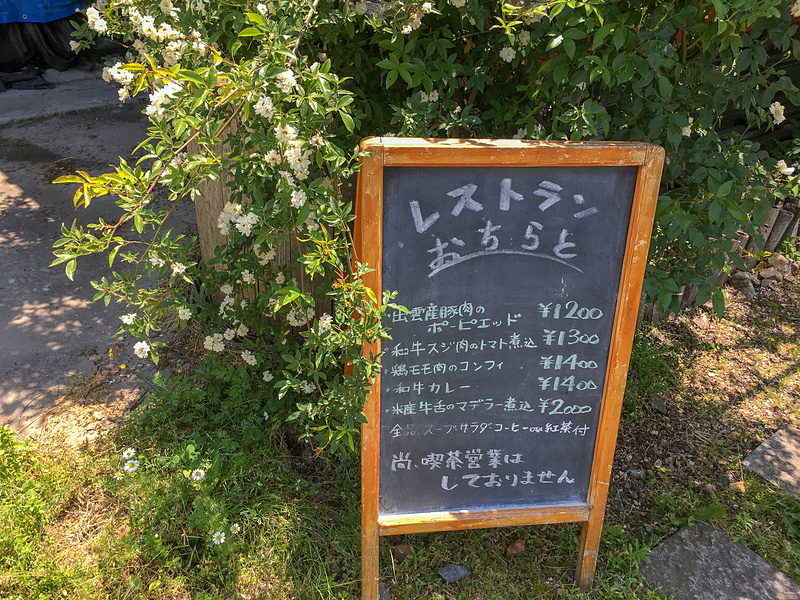 レストラン
おちらと
・出雲産豚肉の
ポーピエッド ¥1200
・和牛スジ肉のトマト煮込 ¥1300
・鶏モモ肉のコンフィ ¥1400
・和牛カレー ¥1400
・米産牛舌のマデラー煮込 ¥2000
全品スープ・サラダ・コーヒーor紅茶付
尚、喫茶営業は
しておりません